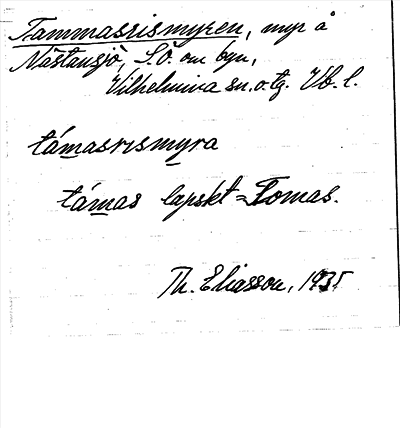 Tammasrismyren, myr å
Nästansjö, S.Ö. om byn,
Vilhelmina sn. o. tg. Vb. l.
támasrismyra
támas lapskt = Tomas.
Th. Eliasson, 1935